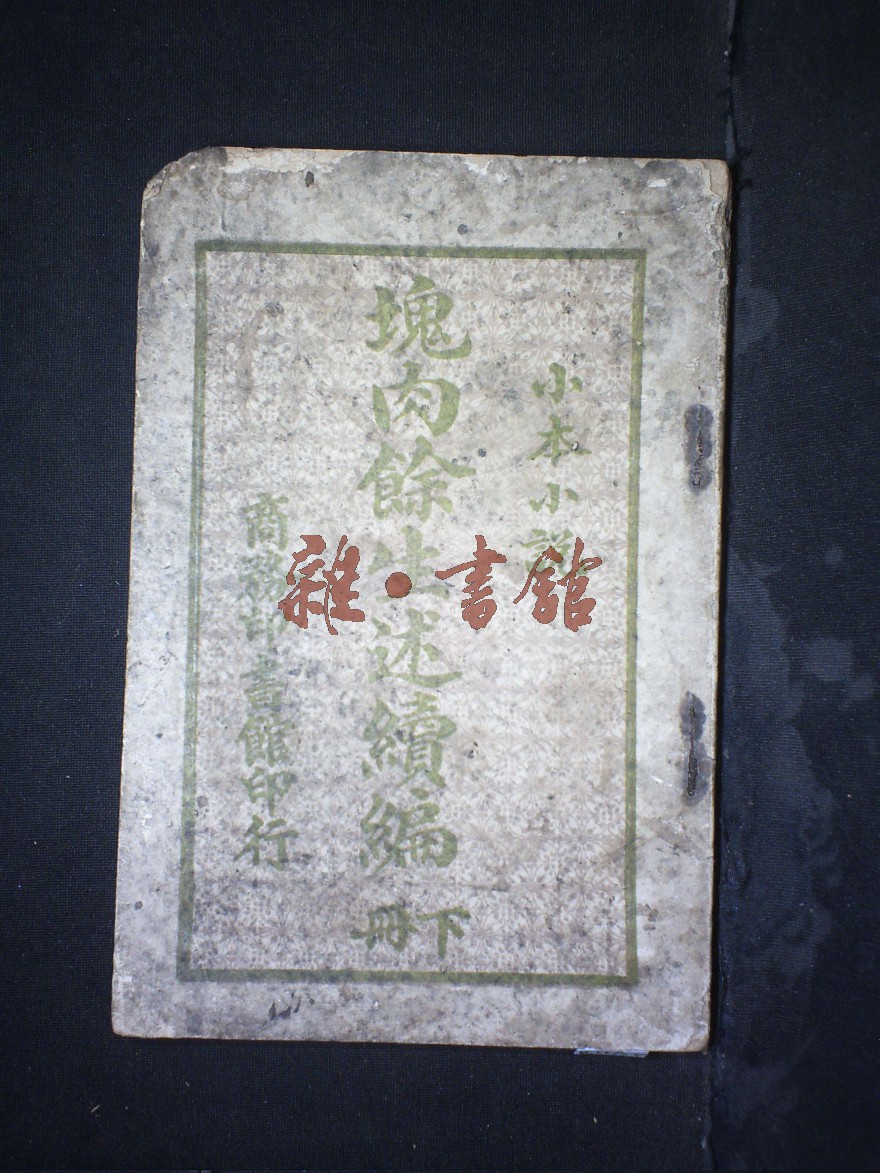 小本小說
塊肉餘生述續編
下冊
商務印書館印行
雜·書館